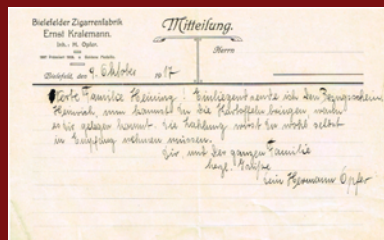 Bielefelder Zigarrenfabrik
Ernst Kralemann.
Inh.: H. Opfer.
Mitteilung.
Herrn
Bielefeld, den 9. Oktober 1917
Werte Familie Heining! Einliegend sende ich den Bezugschein
Heinrich, nun kannst du die Kartoffeln bringen, wann
es dir gelegen kommt. Die Zahlung wirst du wohl selbst
in Empfang nehmen müssen.
Dir und der ganzen Familie
herzl. Grüße
Dein Hermann Opfer